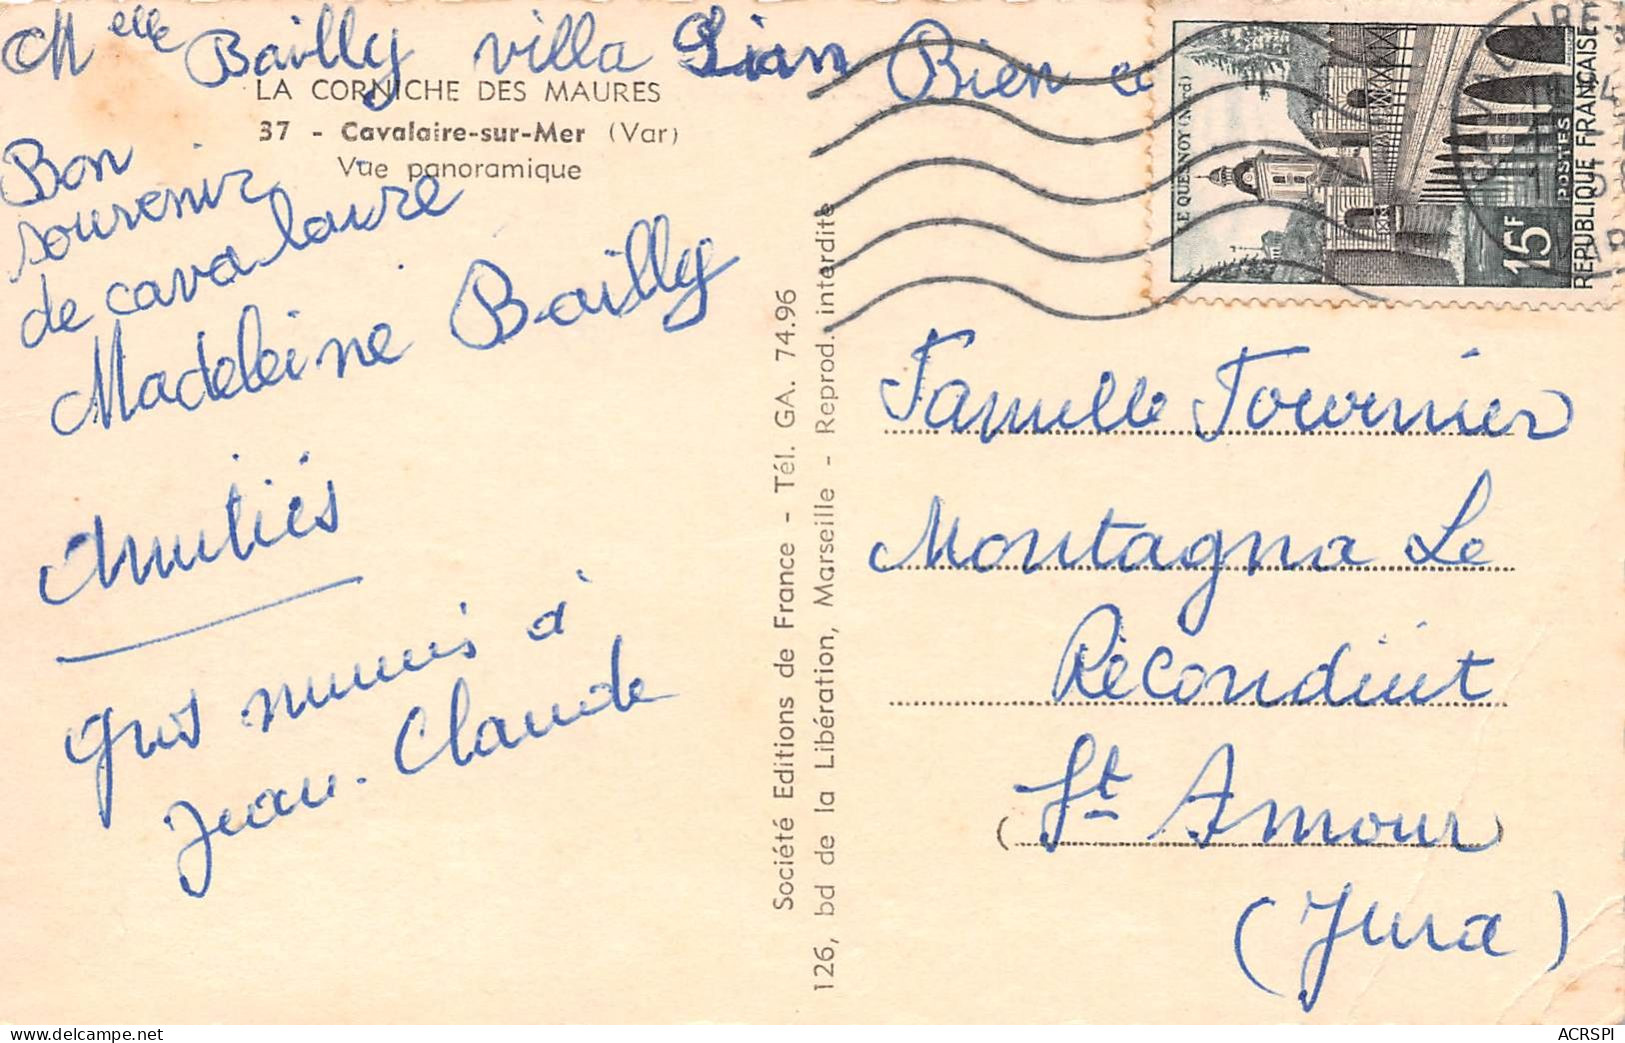 Melle Bailly villa Lian Bien a
LA CORNICHE DES MAURES
37 - Cavalaire-sur-Mer (Var)
Vue panoramique
Bon
souvenir
de cavalaire
Madeleine Bailly
Amitiés
gros mimis à
Jean-Claude
Société Editions de France - Tél. GA. 74.96
126, bd de la Libération, Marseille - Reprod. interdite
LE QUESNOY (Nord)
POSTES
15F
REPUBLIQUE FRANÇAISE
Famille Fournier
Montagna Le
Réconduit
St Amour
(Jura)
ACRSPI